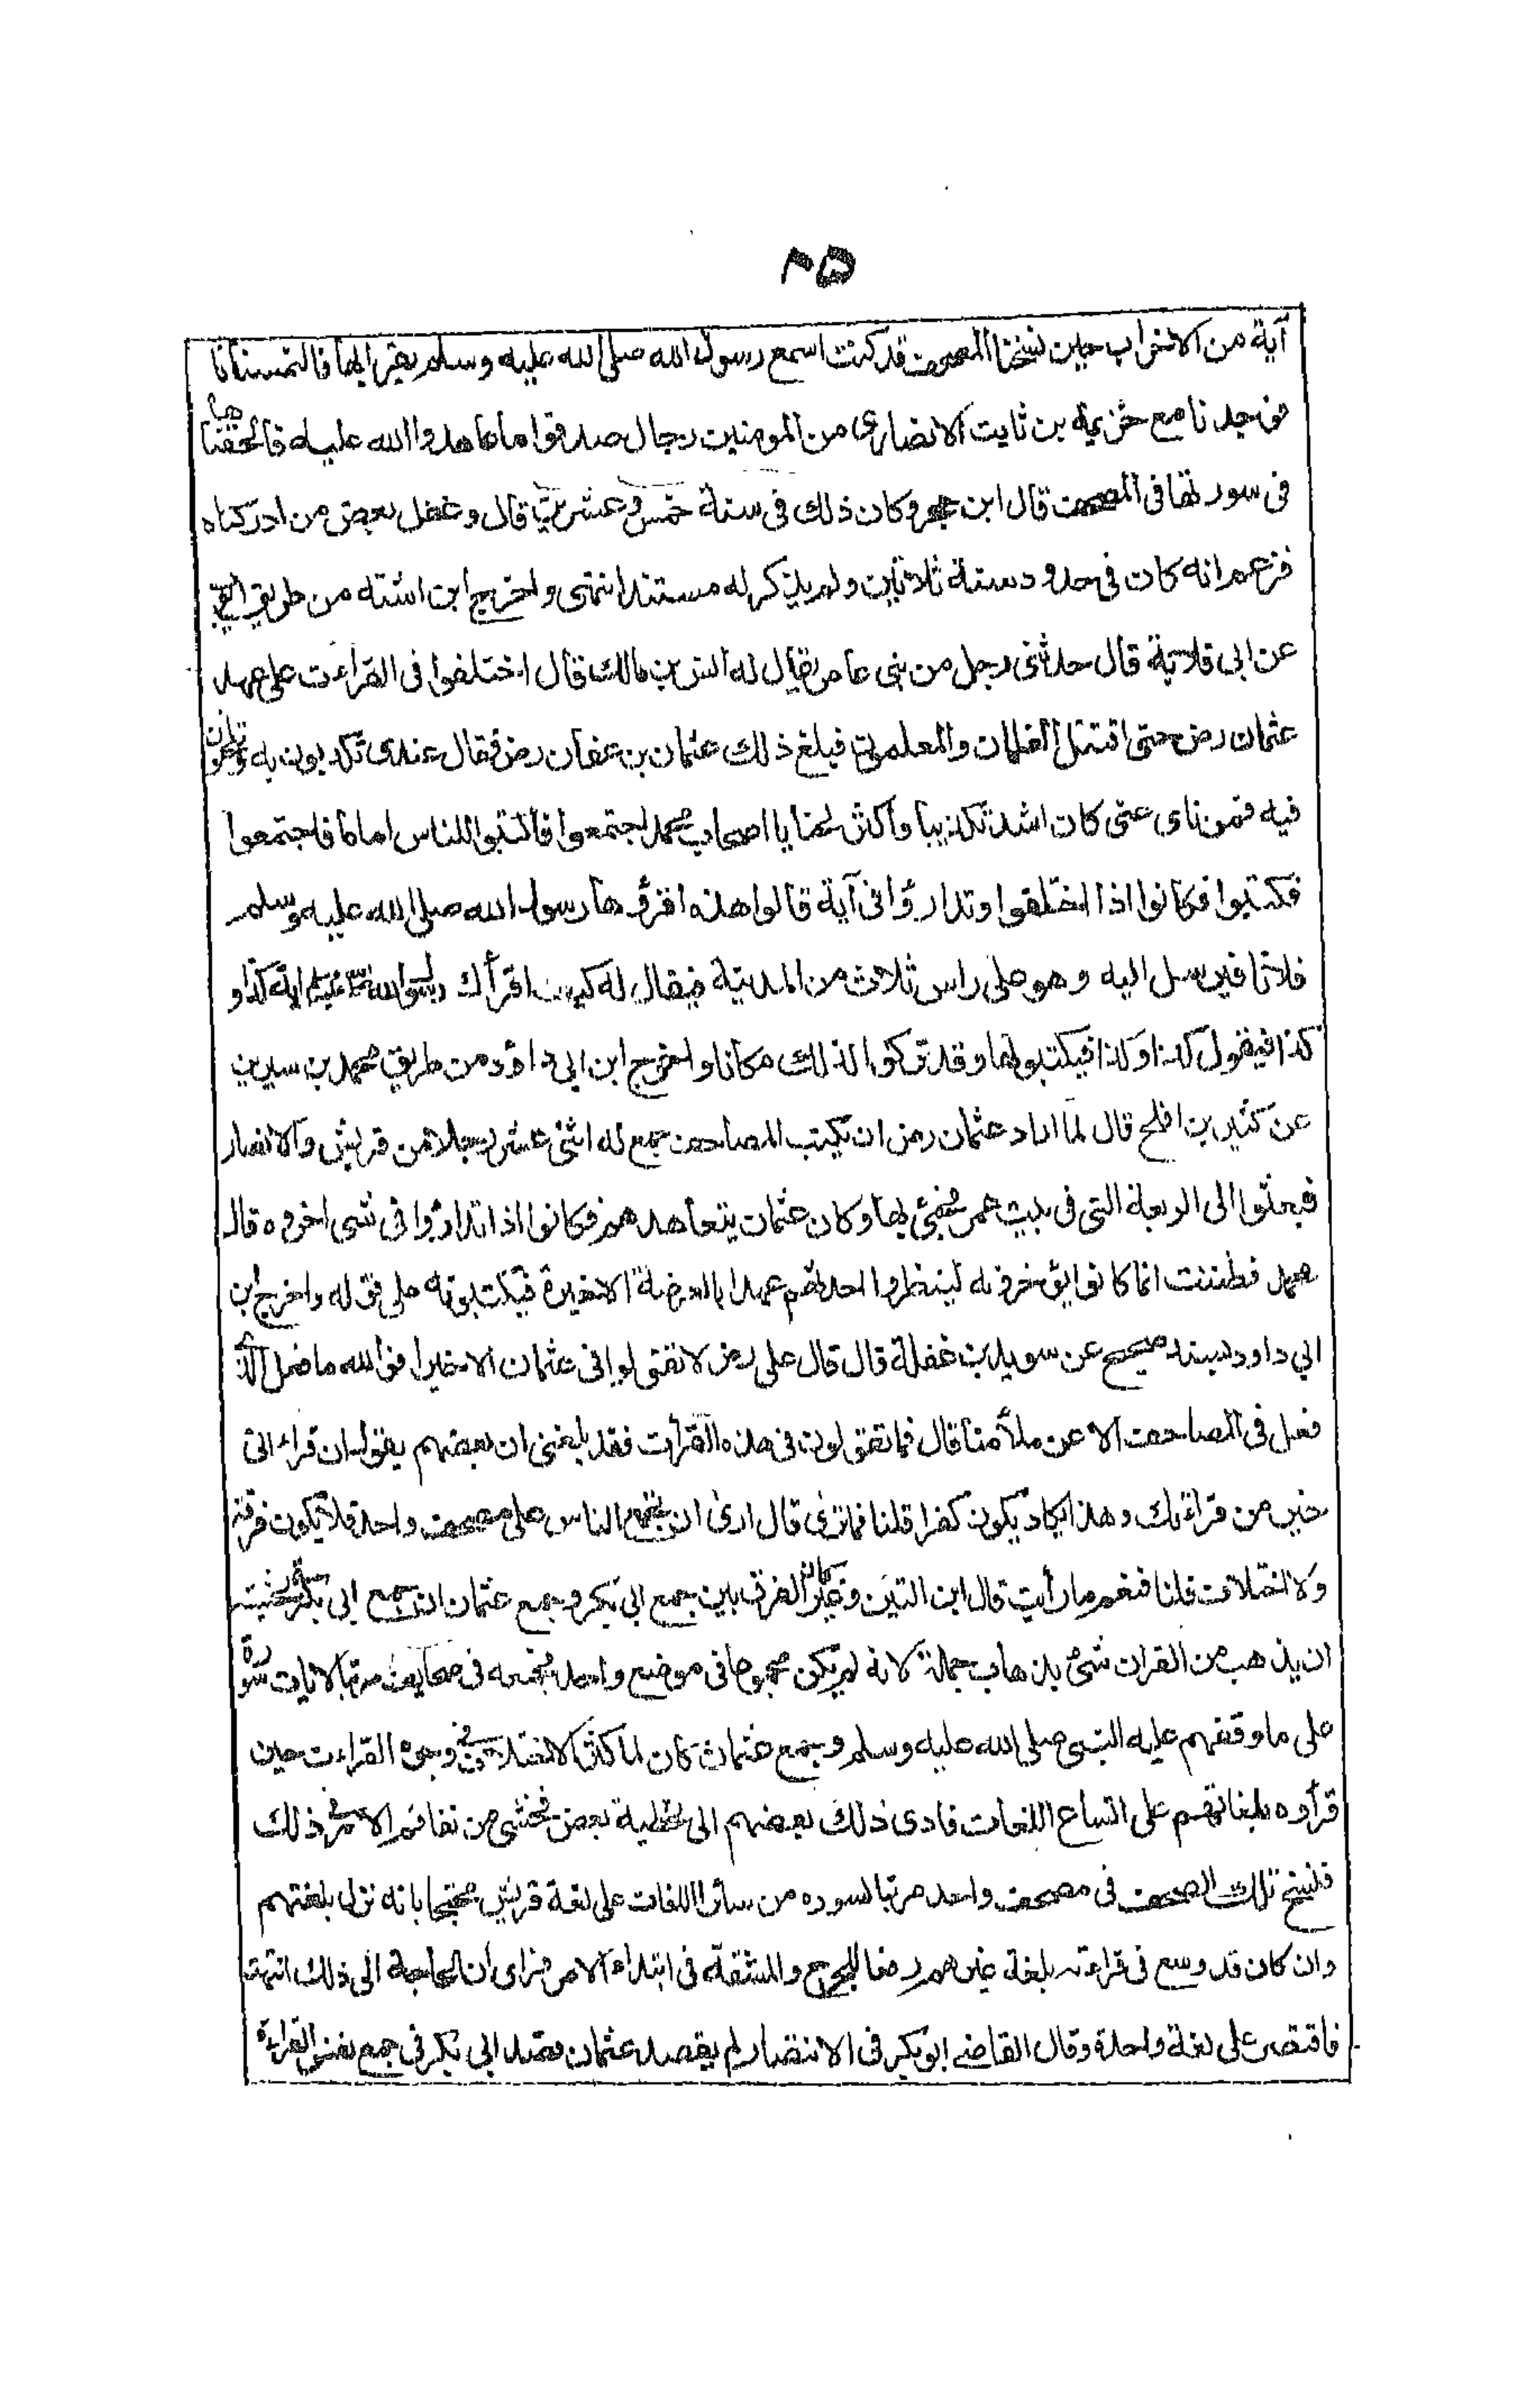 ٢٥
آية من الاحزاب حين نسخنا المصحف قد كنت اسمع رسول الله صلى الله عليه وسلم يقرا بها فالتمسناها
فوجدنا مع خزيمة بن ثابت الانصارى من المومنين رجال صدقوا ما عاهدوا الله عليه فالحقناها
فى سورتها فى المصحف قال ابن حجر وكان ذلك فى سنة خمس وعشرين قال وغفل بعض من ادركناه
فزعم انه كان فى حدود سنة ثلاثين ولم يذكر له مستندا انتهى واخرج ابن اشته من طريق ايوب
عن ابى قلابة قال حدثنى رجل من بنى عامر يقال له انس بن مالك قال اختلفوا فى القراءت على عهد
عثمان رض حتى اقتتل الغلمان والمعلمون فبلغ ذلك عثمان بن عفان رض فقال عندى تكذبون به وتلحنون
فيه فمن ناى عنى كان اشد تكذيبا واكثر لحنا يا اصحاب محمد اجتمعوا فاكتبوا للناس اماما فاجتمعوا
فكتبوا فكانوا اذا اختلفوا وتدارؤا فى آية قالوا هذه اقرؤها رسول الله صلى الله عليه وسلم
فلانا فيرسل اليه وهو على راس ثلاث من المدينة فيقال له كيف اقرأك رسول الله صلى الله عليه وسلم اية كذا و
كذا فيقول كذا وكذا فيكتبونها وقد تركوا لذلك مكانا واخرج ابن ابى داؤد من طريق محمد بن سيرين
عن كثير بن افلح قال لما اراد عثمان رض ان يكتب المصاحف جمع له اثنى عشر رجلا من قريش والانصار
فبعثوا الى الربعة التى فى بيت عمر فجئ بها وكان عثمان يتعاهدهم فكانوا اذا تدارؤا فى شى اخروه قال
محمد فظننت انما كانوا يؤخرونه لينظروا احدثهم عهدا بالعرضة الاخيرة فيكتبونه على قوله واخرج ابن
ابي داود بسند صحيح عن سويد بن غفلة قال قال على رض لا تقولوا فى عثمان الا خيرا فوالله ما فعل الذى
فعل فى المصاحف الا عن ملأ منا قال فما تقولون فى هذه القرأت فقد بلغنى ان بعضهم يقول ان قراءتى
خير من قراءتك وهذا يكاد يكون كفرا قلنا فما ترى قال ارى ان يجتمع الناس على مصحف واحد فلا تكون فرقة
ولا اختلاف قلنا فنعم ما رأيت قال ابن التين وغيره الفرق بين جمع ابى بكر وجمع عثمان ان جمع ابى بكر كان لخشية
ان يذهب من القران شئ بذهاب حملته لانه لم يكن مجموعا فى موضع واحد فجمعه فى صحايف مرتبا لايات سوره
على ما وقفهم عليه النبى صلى الله عليه وسلم وجمع عثمان كان لما كثر الاختلاف فى وجوه القراءت حين
قرأوه بلغاتهم على اتساع اللغات فادى ذلك بعضهم الى تخطية بعض فخشى من تفاقم الامر فى ذلك
فنسخ تلك الصحف فى مصحف واحد مرتبا لسوره من سائر اللغات على لغة قريش محتجا بانه نزل بلغتهم
وان كان قد وسع فى قراءته بلغة غيرهم رفعا للحرج والمشقة فى ابتداء الامر فراى ان الحاجة الى ذلك انتهت
فاقتصر على لغة واحدة وقال القاضى ابو بكر فى الانتصار لم يقصد عثمان قصد ابى بكر فى جمع نفس القراءة